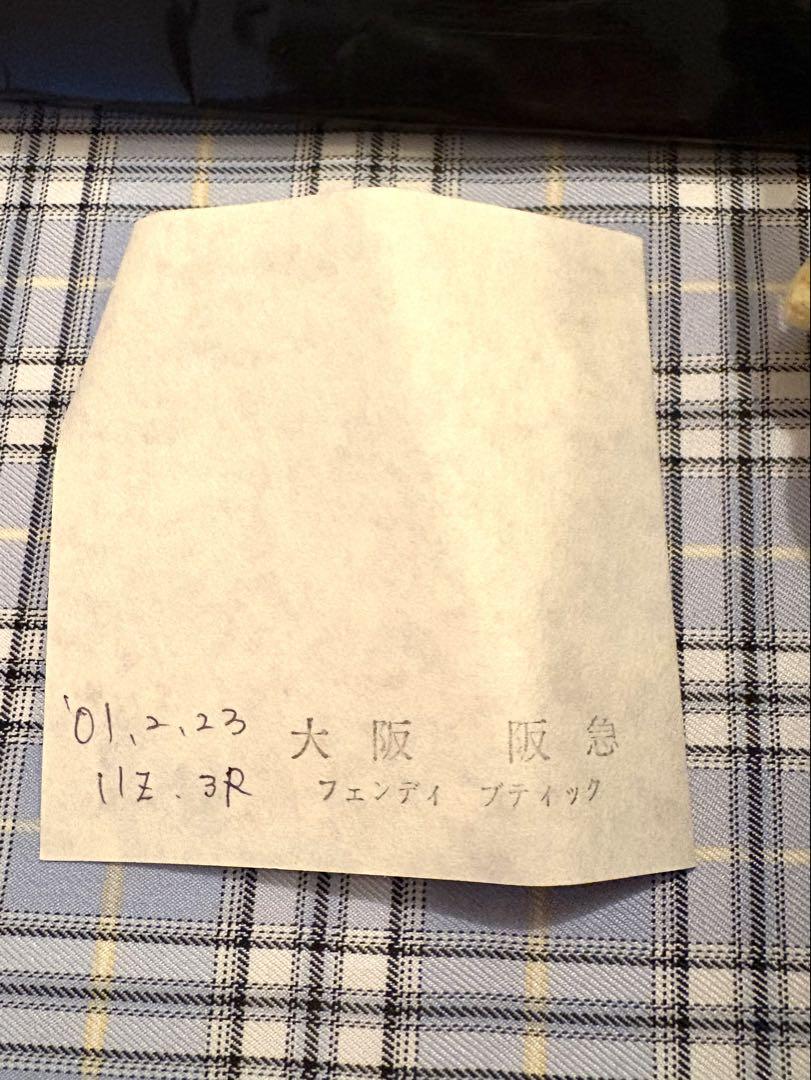 '01.2.23 大阪 阪急
11Z.3R フェンディ ブティック